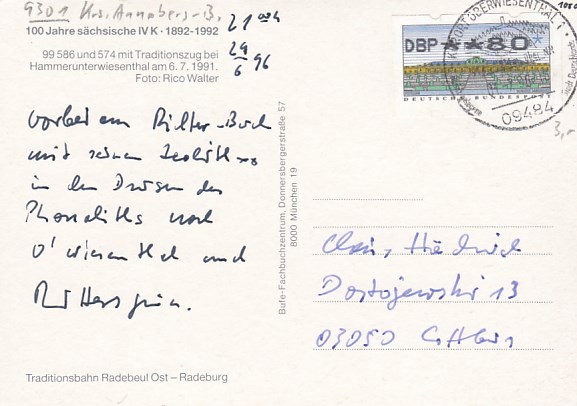 9301 Krs. Annaberg-B.
100 Jahre sächsische IV K · 1892-1992
99 586 und 574 mit Traditionszug bei
Hammerunterwiesenthal am 6.7.1991.
Foto: Rico Walter
21 004
29/6 96
DBP 80
DEUTSCHE BUNDESPOST
KURORT OBERWIESENTHAL 1
09484
3,-
vorbei am Richter-Bruch
mit seinen Zeolith
in den Drusen des
Phonoliths nach
O'wiesenthal und
Rittersgrün.
Bufe-Fachbuchzentrum, Donnersbergerstraße 57
8000 München 19
Dostojewski 13
03050 Cottbus
Traditionsbahn Radebeul Ost – Radeburg